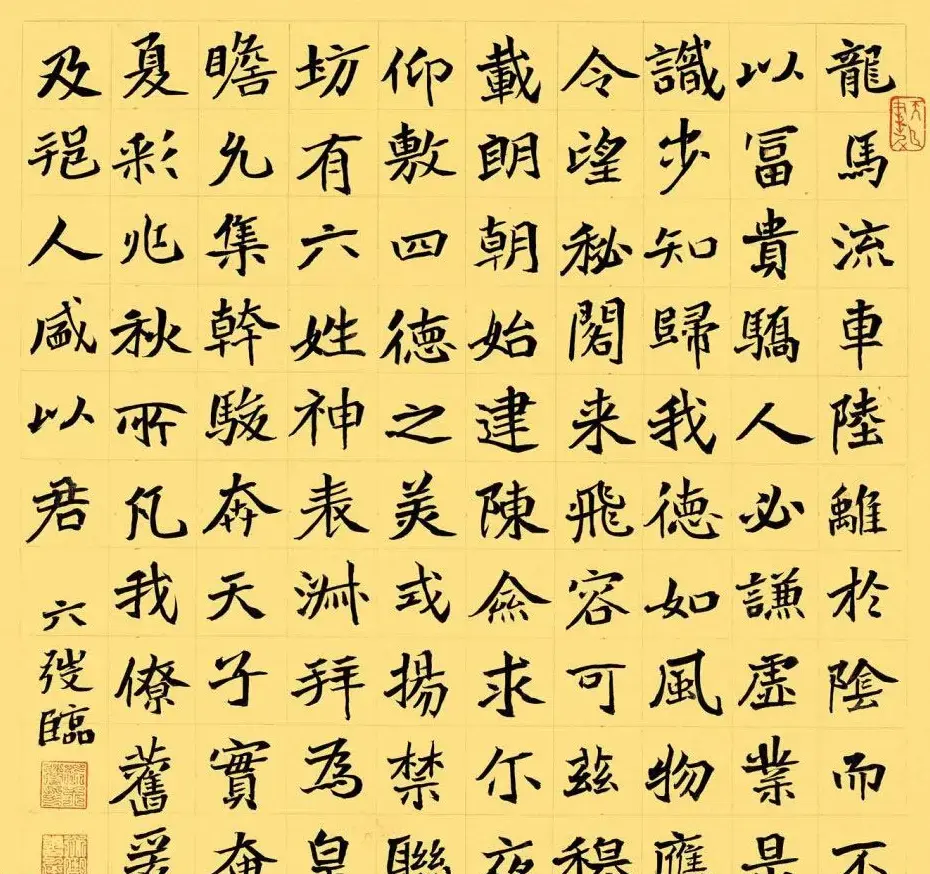 龍馬流車陸離於陰而不
以冨貴驕人必謙虛業是
識步知歸我德如風物應
令望秘閣来飛容可茲穆
載朗朝始建陳僉求尔夜
仰敷四德之美式揚禁聯
坊有六姓神表拜為皇
瞻允集幹駿奔天子實奮
夏彩兆秋所凡我僚舊爰
及人咸以君
六弢臨